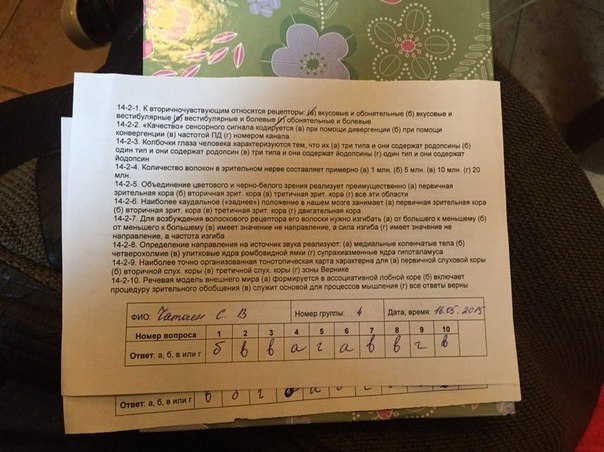 14-2-1. К вторичночувствующим относятся рецепторы: (а) вкусовые и обонятельные (б) вкусовые и
вестибулярные (в) вестибулярные и болевые (г) обонятельные и болевые
14-2-2. «Качество» сенсорного сигнала кодируется (а) при помощи дивергенции (б) при помощи
конвергенции (в) частотой ПД (г) номером канала
14-2-3. Колбочки глаза человека характеризуются тем, что их (а) три типа и они содержат родопсины (б)
один тип и они содержат родопсин (в) три типа и они содержат йодопсины (г) один тип и они содержат
йодопсин
14-2-4. Количество волокон в зрительном нерве составляет примерно (а) 1 млн. (б) 5 млн. (в) 10 млн. (г) 20
млн.
14-2-5. Объединение цветового и черно-белого зрения реализует преимущественно (а) первичная
зрительная кора (б) вторичная зрит. кора (в) третичная зрит. кора (г) все эти области
14-2-6. Наиболее каудальное («заднее») положение в нашем мозге занимает (а) первичная зрительная кора
(б) вторичная зрит. кора (в) третичная зрит. кора (г) двигательная кора
14-2-7. Для возбуждения волоскового рецептора его волоски нужно изгибать (а) от большего к меньшему (б)
от меньшего к большему (в) имеет значение не направление, а сила изгиба (г) имеет значение не
направление, а частота изгиба
14-2-8. Определение направления на источник звука реализуют: (а) медиальные коленчатые тела (б)
четверохолмие (в) улитковые ядра ромбовидной ямки (г) супрахиазменные ядра гипоталамуса
14-2-9. Наиболее точно организованная тонотопическая карта характерна для (а) первичной слуховой коры
(б) вторичной слух. коры (в) третичной слух. коры (г) зоны Вернике
14-2-10. Речевая модель внешнего мира (а) формируется в ассоциативной лобной коре (б) включает
процедуру зрительного обобщения (в) служит основой для процессов мышления (г) все ответы верны
ФИО: С. В Номер группы: 4 Дата, время: 16.05.2015
Номер вопроса 1 2 3 4 5 6 7 8 9 10
Ответ: а, б, в или г б в в а г а в в г в
Ответ: а, б, в или г